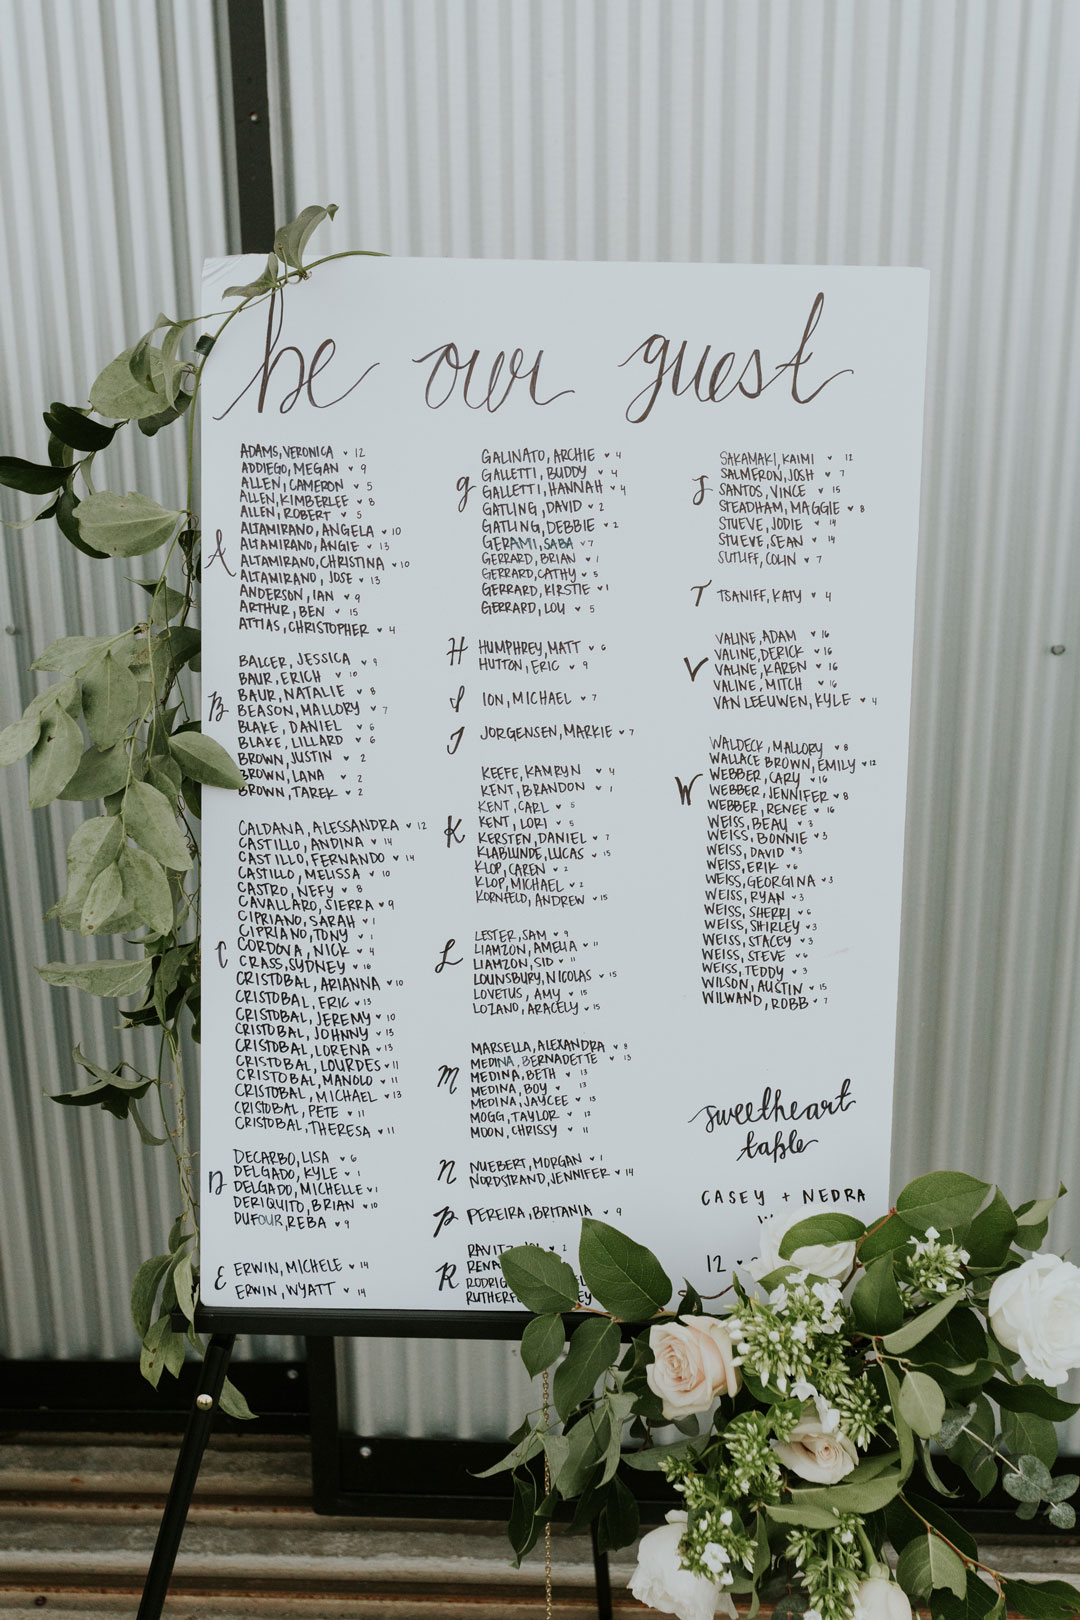 be our guest
A
ADAMS, VERONICA ♥ 12
ADDIEGO, MEGAN ♥ 9
ALLEN, CAMERON ♥ 5
ALLEN, KIMBERLEE ♥ 8
ALLEN, ROBERT ♥ 5
ALTAMIRANO, ANGELA ♥ 10
ALTAMIRANO, ANGIE ♥ 13
ALTAMIRANO, CHRISTINA ♥ 10
ALTAMIRANO, JOSE ♥ 13
ANDERSON, IAN ♥ 9
ARTHUR, BEN ♥ 15
ATTIAS, CHRISTOPHER ♥ 4
B
BALCER, JESSICA ♥ 9
BAUR, ERICH ♥ 10
BAUR, NATALIE ♥ 8
BEASON, MALLORY ♥ 7
BLAKE, DANIEL ♥ 6
BLAKE, LILLARD ♥ 6
BROWN, JUSTIN ♥ 2
BROWN, LANA ♥ 2
BROWN, TAREK ♥ 2
C
CALDANA, ALESSANDRA ♥ 12
CASTILLO, ANDINA ♥ 14
CASTILLO, FERNANDO ♥ 14
CASTILLO, MELISSA ♥ 10
CASTRO, NEFY ♥ 8
CAVALLARO, SIERRA ♥ 9
CIPRIANO, SARAH ♥ 1
CIPRIANO, TONY ♥ 1
CORDOVA, NICK ♥ 4
CRASS, SYDNEY ♥ 16
CRISTOBAL, ARIANNA ♥ 10
CRISTOBAL, ERIC ♥ 13
CRISTOBAL, JEREMY ♥ 10
CRISTOBAL, JOHNNY ♥ 13
CRISTOBAL, LORENA ♥ 13
CRISTOBAL, LOURDES ♥ 11
CRISTOBAL, MANOLO ♥ 11
CRISTOBAL, MICHAEL ♥ 13
CRISTOBAL, PETE ♥ 11
CRISTOBAL, THERESA ♥ 11
D
DECARBO, LISA ♥ 6
DELGADO, KYLE ♥ 1
DELGADO, MICHELLE ♥ 1
DERIQUITO, BRIAN ♥ 10
DUFOUR, REBA ♥ 9
E
ERWIN, MICHELE ♥ 14
ERWIN, WYATT ♥ 14
g
GALINATO, ARCHIE ♥ 4
GALLETTI, BUDDY ♥ 4
GALLETTI, HANNAH ♥ 4
GATLING, DAVID ♥ 2
GATLING, DEBBIE ♥ 2
GERAMI, SABA ♥ 7
GERRARD, BRIAN ♥ 1
GERRARD, CATHY ♥ 5
GERRARD, KIRSTIE ♥ 1
GERRARD, LOU ♥ 5
H
HUMPHREY, MATT ♥ 6
HUTTON, ERIC ♥ 9
I
ION, MICHAEL ♥ 7
J
JORGENSEN, MARKIE ♥ 7
K
KEEFE, KAMRYN ♥ 4
KENT, BRANDON ♥ 1
KENT, CARL ♥ 5
KENT, LORI ♥ 5
KERSTEN, DANIEL ♥ 7
KLABLUNDE, LUCAS ♥ 15
KLOP, CAREN ♥ 2
KLOP, MICHAEL ♥ 2
KORNFELD, ANDREW ♥ 15
L
LESTER, SAM ♥ 9
LIAMZON, AMELIA ♥ 11
LIAMZON, SID ♥ 11
LOUNSBURY, NICOLAS ♥ 15
LOVETUS, AMY ♥ 15
LOZANO, ARACELY ♥ 15
M
MARSELLA, ALEXANDRA ♥ 8
MEDINA, BERNADETTE ♥ 13
MEDINA, BETH ♥ 13
MEDINA, BOY ♥ 13
MEDINA, JAYCEE ♥ 13
MOGG, TAYLOR ♥ 12
MOON, CHRISSY ♥ 11
N
NUEBERT, MORGAN ♥ 1
NORDSTRAND, JENNIFER ♥ 14
P
PEREIRA, BRITANIA ♥ 9
R
RAVITZ, ♥ 2
S
SAKAMAKI, KAIMI ♥ 12
SALMERON, JOSH ♥ 7
SANTOS, VINCE ♥ 15
STEADHAM, MAGGIE ♥ 8
STUEVE, JODIE ♥ 14
STUEVE, SEAN ♥ 14
SUTLIFF, COLIN ♥ 7
T
TSANIFF, KATY ♥ 4
V
VALINE, ADAM ♥ 16
VALINE, DERICK ♥ 16
VALINE, KAREN ♥ 16
VALINE, MITCH ♥ 16
VAN LEEUWEN, KYLE ♥ 4
W
WALDECK, MALLORY ♥ 8
WALLACE BROWN, EMILY ♥ 12
WEBBER, CARY ♥ 16
WEBBER, JENNIFER ♥ 8
WEBBER, RENEE ♥ 16
WEISS, BEAU ♥ 3
WEISS, BONNIE ♥ 3
WEISS, DAVID ♥ 3
WEISS, ERIK ♥ 6
WEISS, GEORGINA ♥ 3
WEISS, RYAN ♥ 3
WEISS, SHERRI ♥ 6
WEISS, SHIRLEY ♥ 3
WEISS, STACEY ♥ 3
WEISS, STEVE ♥ 6
WEISS, TEDDY ♥ 3
WILSON, AUSTIN ♥ 15
WILWAND, ROBB ♥ 7
sweetheart
table
CASEY + NEDRA
12 ♥